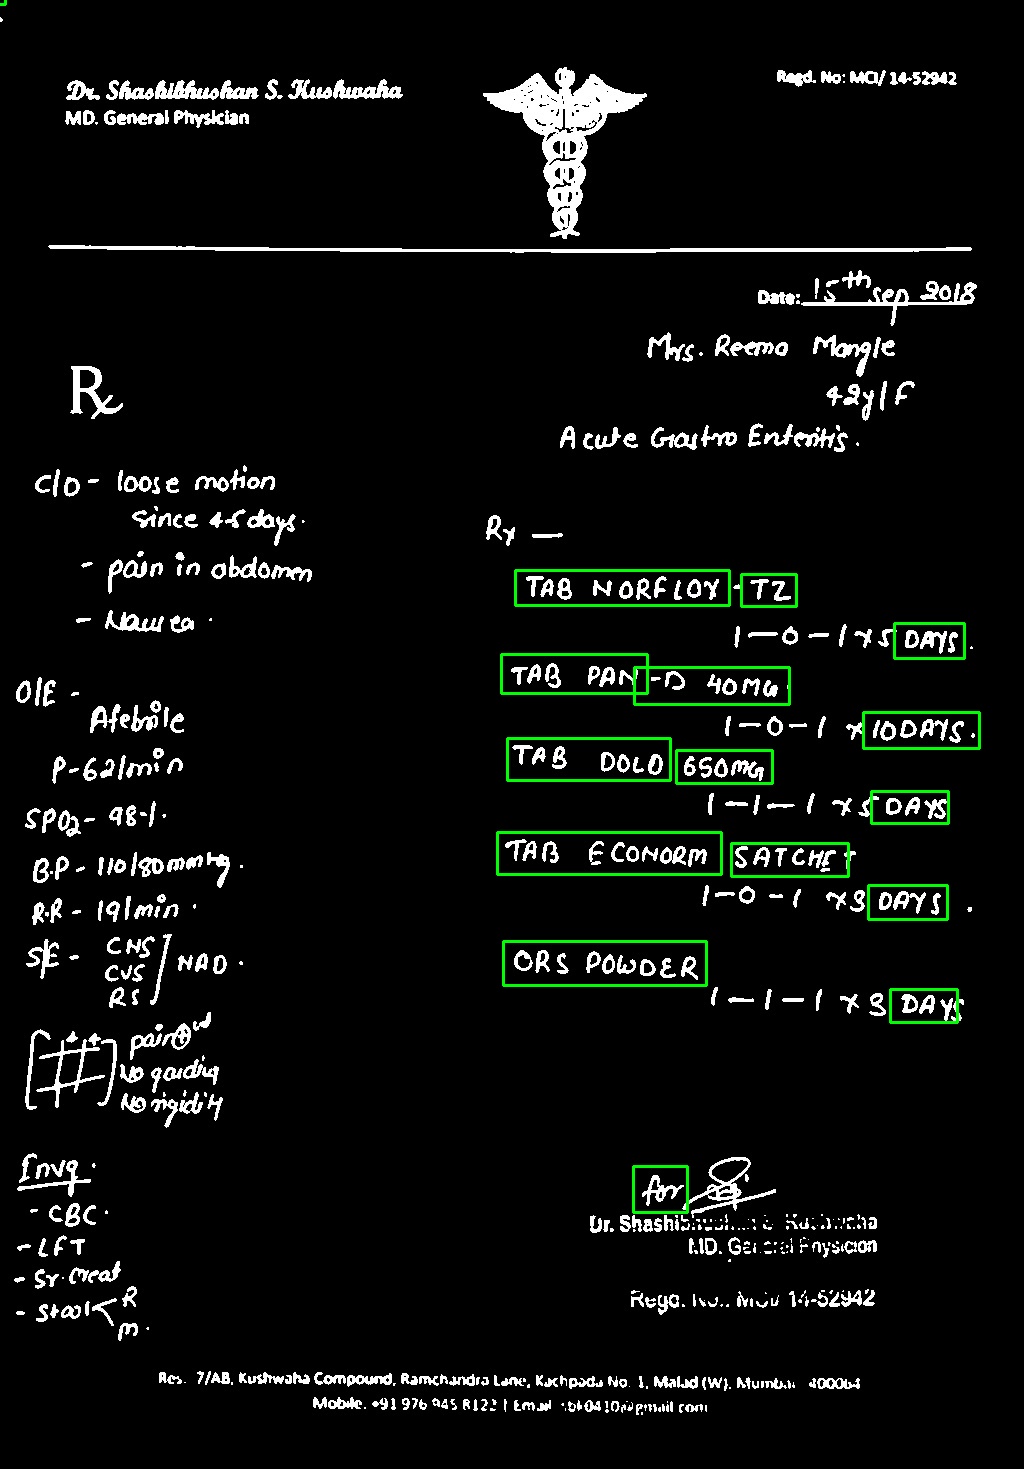 Dr. Shashibhushan S. Kushwaha
MD. General Physician
Regd. No: MCI/ 14-52942
Date: 15th sep 2018
Mrs. Reema Mangle
42y/F
Acute Gastro Enteritis.
Rx
C/O - loose motion
since 4-5 days.
- pain in abdomen
- Nausea.
O/E -
Afebrile
P-62/min
SPO2 - 98-/.
B.P - 110/80mmHg.
R.R - 19/min.
S/E - CNS
CVS
RS
NAD.
pain +
No garding
No rigidity
Invg.
- CBC.
- LFT
- Sr. Creat
- Stool < R
m.
Rx —
TAB NORFLOX - TZ
1-0-1 x 5 DAYS.
TAB PAN-D 40MG
1-0-1 x 10 DAYS.
TAB DOLO 650MG
1-1-1 x 5 DAYS
TAB ECONORM SATCHET
1-0-1 x 3 DAYS.
ORS POWDER
1-1-1 x 3 DAYS
for
Dr. Shashibhushan S. Kushwaha
MD. General Physician
Regd. No.: MCI/ 14-52942
Res. 7/AB, Kushwaha Compound, Ramchandra Lane, Kachpada No. 1, Malad (W), Mumbai 400064
Mobile. +91 976 945 8122 | Email sbk0410@gmail.com